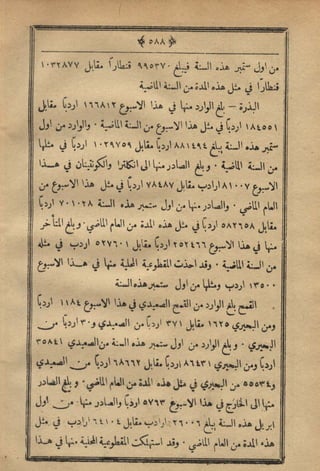 ﴿ ٥٨٨ ﴾
من اول ستمبر هذه السنة فيبلغ ٩٩٥٣٧٠ قنطارًا مقابل ١٠٣٢٨٧٧
قنطارًا في مثل هذه المدة من السنة الماضية
البذرة — بلغ الوارد منها في هذا الاسبوع ١٦٦٨١٢ اردبًا مقابل
١٨٤٥٥١ اردبًا في مثل هذا الاسبوع من السنة الماضية . والوارد من اول
ستمبر هذه السنة يبلغ ٨٨١٤٩٤ اردبًا مقابل ١٠٢٩٧٥٩ اردبًا في مثلها
من السنة الماضية . وبلغ الصادر منها الى انكلترا والكونتيننان في هذا
الاسبوع ٨١٠٠٧ ارادب مقابل ٧٨٤٨٧ اردبًا في مثل هذا الاسبوع من
العام الماضي . والصادر منها من اول ستمبر هذه السنة ٧٠١٠٢٨ اردبًا
مقابل ٥٨٢٦٥٨ اردبًا في مثل هذه المدة من العام الماضي . وبلغ المتأخر
منها في هذا الاسبوع ٢٥٢٤٦٦ اردبًا مقابل ٥٢٧٦٠١ اردب في مثله
من السنة الماضية . وقد اخذت المقطوعية المحلية منها في هذا الاسبوع
١٣٥٠٠ اردب ومثلها من اول ستمبر هذه السنة
القمح بلغ الوارد من القمح الصعيدي في هذا الاسبوع ١١٨٤ اردبًا
ومن البحيري ١٦٢٥ مقابل ٣٧١ اردبًا من الصعيدي و٣٠ اردبًا من
البحيري . وبلغ الوارد من اول ستمبر هذه السنة من الصعيدي ٣٥٨٤١
اردبًا ومن البحيري ٨٦٤٣١ اردبًا مقابل ٦٨٦٦٢ اردبًا من الصعيدي
و٥٥٣٤٠ من البحيري في مثل هذه المدة من العام الماضي . وبلغ الصادر
منها الى الخارج في هذا الاسبوع ٥٧٦٣ اردبًا والصادر منها من اول
ابريل هذه السنة يبلغ ٢٦٠٠٦ ارادب مقابل ٦٤١٠٤ ارادب في مثل
هذه المدة من العام الماضي . وقد استهلكت المقطوعية المحلية منها في هذا